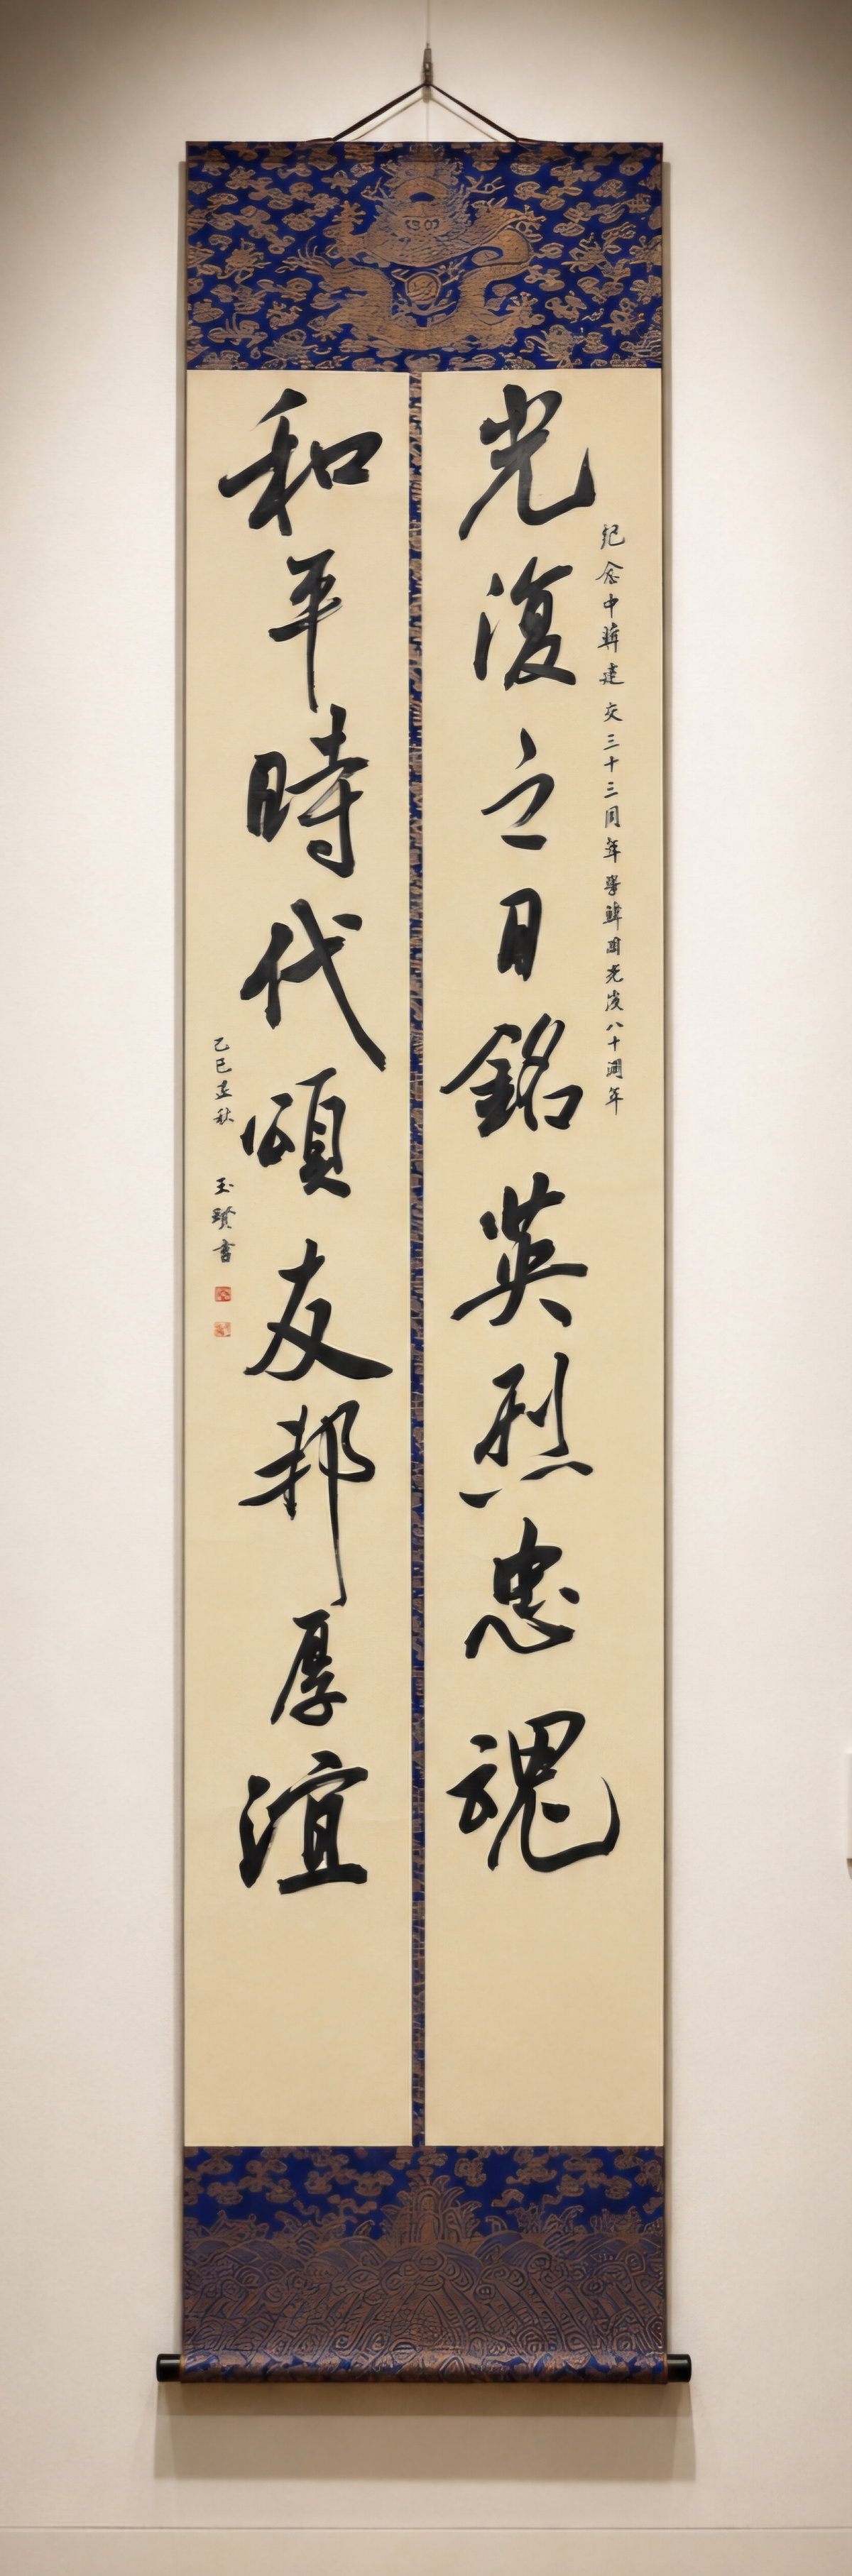 紀念中韓建交三十三周年暨韓國光復八十週年
光復之日銘英烈忠魂
和平時代頌友邦厚誼
乙巳孟秋 玉賢書